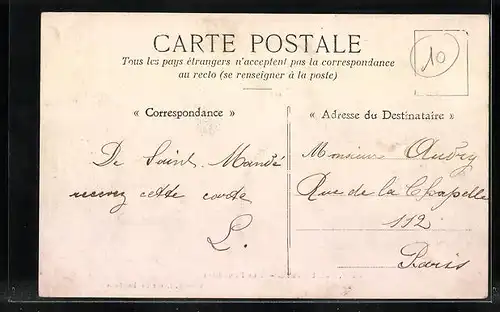 CARTE POSTALE
Tous les pays étrangers n'acceptent pas la correspondance
au recto (se renseigner à la poste)
10
« Correspondance »
« Adresse du Destinataire »
De Saint-Mandé
recevez cette carte
L.
Monsieur Aubry
Rue de la Chapelle
112
Paris